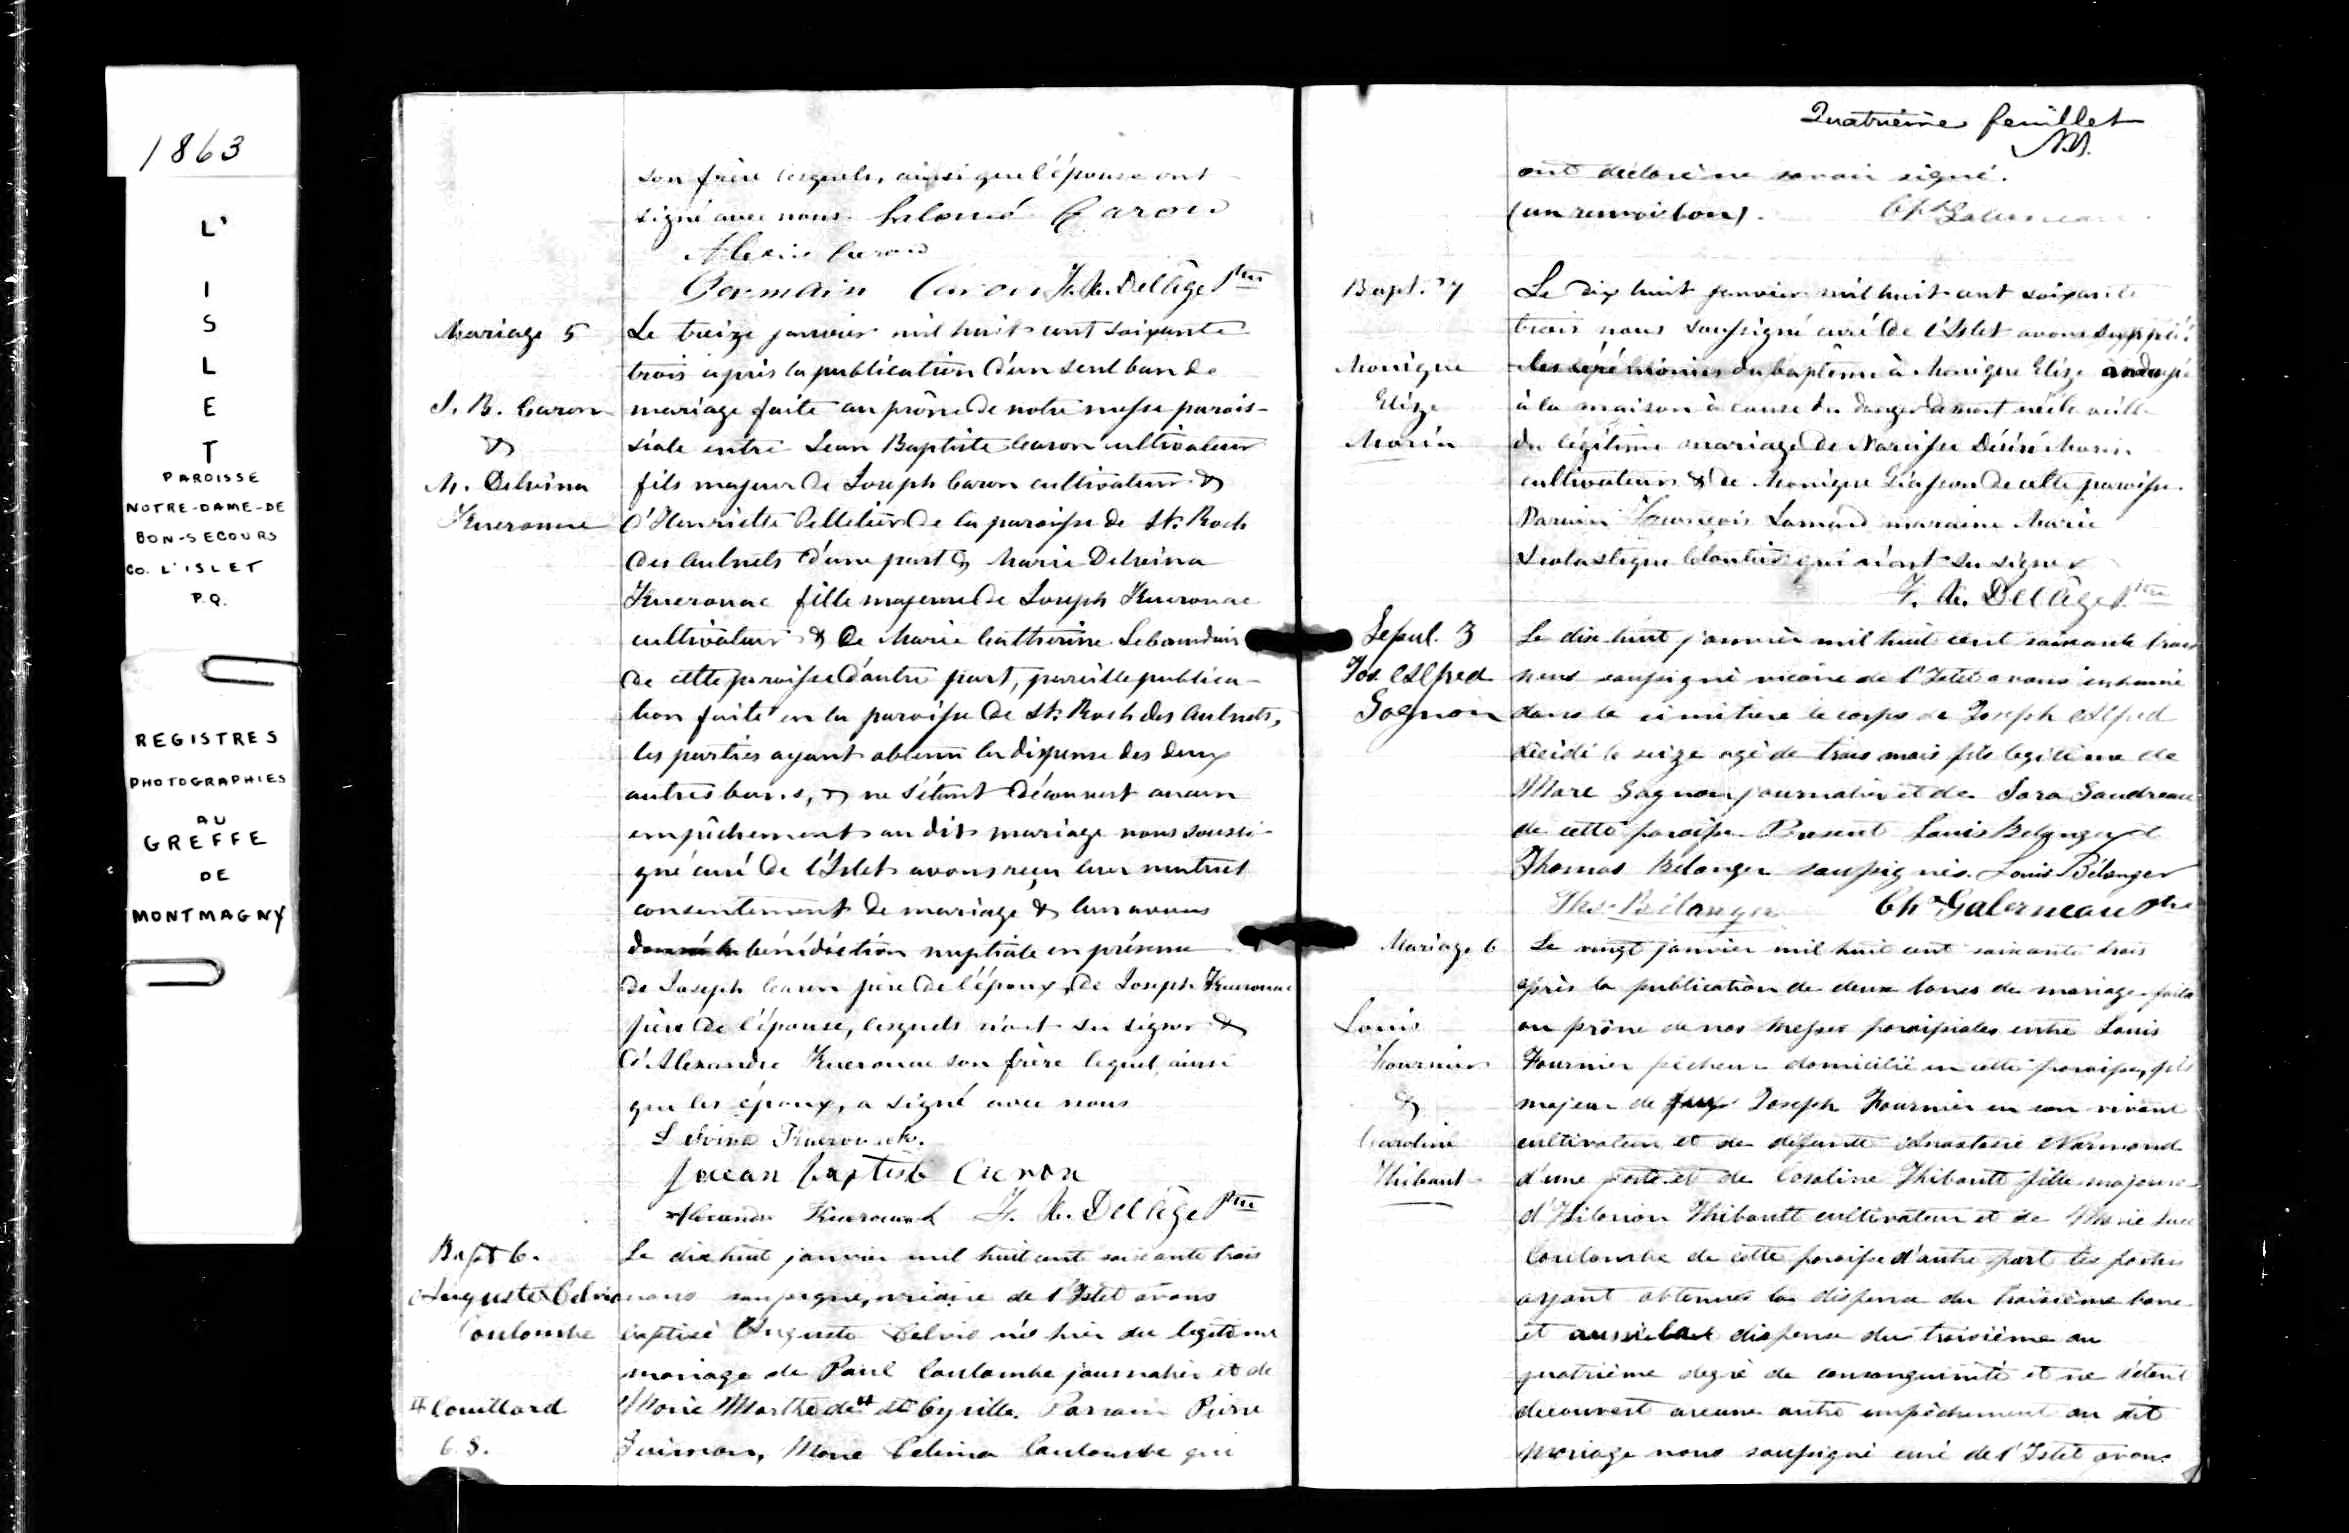 1863
L'
I
S
L
E
T
PAROISSE
NOTRE-DAME-DE
BON-SECOURS
CO. L'ISLET
P.Q.
REGISTRES
PHOTOGRAPHIES
AU
GREFFE
DE
MONTMAGNY
son frère lesquels, ainsi que l'épouse ont
signé avec nous. Salomé Caron
Alexis Caron
Germain Caron F. X. Delâge Ptre
Mariage 5
J. B. Caron
&
M. Delvina
Kueronac
Le treize janvier mil huit cent soixante
trois après la publication d'un seul ban de
mariage faite au prône de notre messe parois-
siale entre Jean Baptiste Caron cultivateur
fils majeur de Joseph Caron cultivateur &
d'Henriette Pelletier de la paroisse de St. Roch
des Aulnets d'une part & Marie Delvina
Kueronac fille majeure de Joseph Kueronac
cultivateur & de Marie Catherine
de cette paroisse d'autre part, pareille publica-
tion faite en la paroisse de St. Roch des Aulnets,
les parties ayant obtenu la dispense des deux
autres bans, & ne s'étant découvert aucun
empêchement au dit mariage nous soussi-
gné curé de l'Islet avons reçu leur mutuel
consentement de mariage & leur avons
donné la bénédiction nuptiale en présence
de Joseph Caron père de l'époux, de Joseph Kueronac
père de l'épouse, lesquels n'ont su signer &
d'Alexandre Kueronac son frère lequel, ainsi
que les époux, a signé avec nous
Jean baptiste Caron
F. X. Delâge Ptre
Bapt 6.
Auguste Celvio
Coulombe
Le dix huit janvier mil huit cent soixante trois
nous soussigné, vicaire de l'Islet avons
baptisé Auguste Celvio né hier du légitime
mariage de Paul Coulombe journalier et de
# Couillard
Marie Marthe de # St Cyrille. Parrain Pierre
Marie Celina Coulombe qui
Quatrième feuillet
ont déclaré ne savoir signé.
(un renvoi bon). Chs Galerneau
Bapt. 7
Monique
Elize
Morin
Le dix huit janvier mil huit cent soixante
trois nous soussigné curé de l'Islet avons suppléé
les cérémonies du baptême à Monique Elize ondoyée
à la maison à cause du danger de mort née la veille
du légitime mariage de Narcisse Désiré Morin
cultivateur & de Monique Giasson de cette paroisse.
Parrain François marraine Marie
Scolastique Cloutier qui n'ont su signer
F. X. Delâge Ptre
Sepul. 3
Jos. Alfred
Gagnon
Le dix huit janvier mil huit cent soixante trois
nous soussigné vicaire de l'Islet avons inhumé
dans le cimetière le corps de Joseph Alfred
décédé le seize agé de trois mois fils légitime de
Marc Gagnon journalier et de Sara Gaudreau
de cette paroisse. Présent Louis Belanger et
Thomas Bélanger soussignés. Louis Bélanger
Ths. Bélanger Chs Galerneau Ptre
Mariage 6
Louis
Fournier
&
Caroline
Thibault
Le vingt janvier mil huit cent soixante trois
après la publication de deux bancs de mariage faite
au prône de nos messes paroissiales entre Louis
Fournier pêcheur domicilié en cette paroisse, fils
majeur de feu Joseph Fournier en son vivant
cultivateur et de défunte Anastasie Normand
d'une part et de Caroline Thibault fille majeure
d'Hilarion Thibault cultivateur et de Marie Luce
Coulombe de cette paroisse d'autre part les parties
ayant obtenues la dispense du troisième banc
et aussi la dispense du troisième au
quatrième degré de consanguinité et ne s'étant
découvert aucune autre empêchement au dit
mariage nous soussigné curé de l'Islet avons